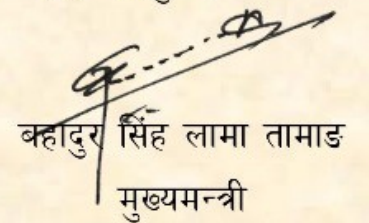 बहादुर सिंह लामा तामाङ
मुख्यमन्त्री